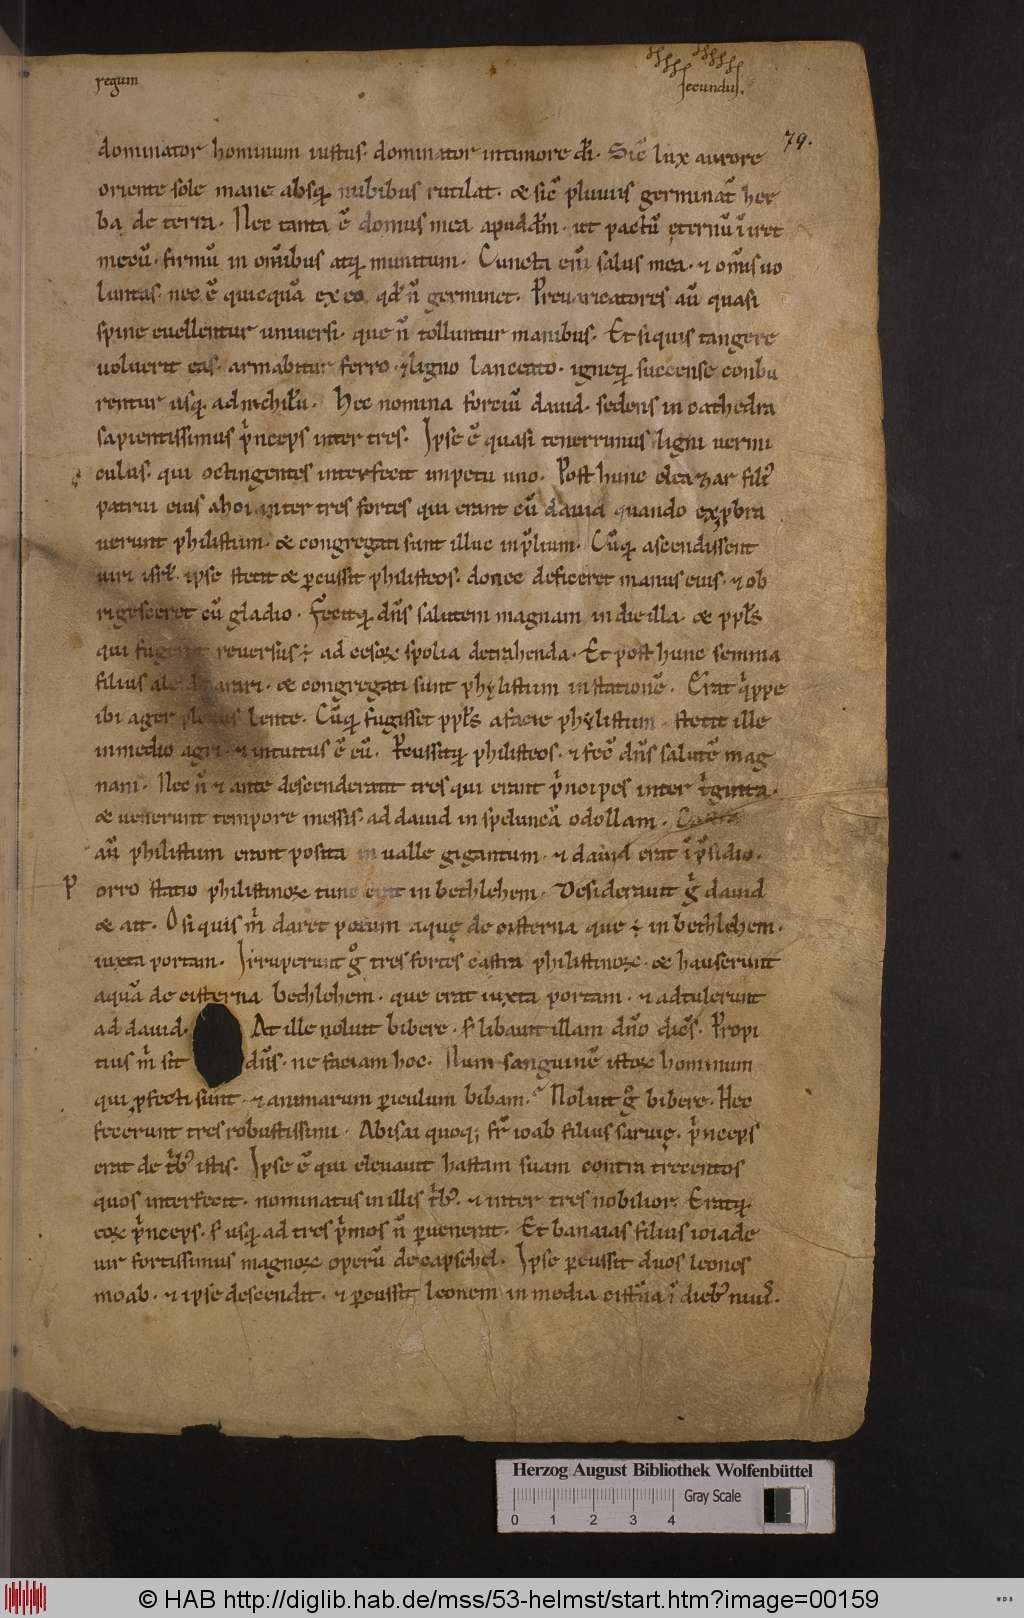 regum
secundus.
79.
dominator hominum iustus dominator intimore dī. Sič lux aurore
oriente sole mane absq; nubibus rutilat. & sič pluuiis germinat̄ her
ba de terra. Nec tanta ē domus mea apud dm̄. ut pactū ęternū īiret
mecū. firmū in om̄ibus atq; munitum. Cuncta em̄ salus mea. & om̄is uo
luntas. nec ē quicquā ex ea qd̄ n̄ germinet. Preuaricatores aū quasi
spine euellentur uniuersi. que n̄ tolluntur manibus. Et siquis tangere
uoluerit eas. armabitur ferro. & ligno lanceato. igneq; succense conbu
rentur usq; ad nichilū. Hec nomina forciū dauid. sedens in cathedra
sapientissimus p̄nceps inter tres. Ipse ē quasi tenerrimus ligni uermi
culus. qui octingentes interfecit impetu uno. Post hunc eleazar filī
patrui eius ahoi. inter tres fortes qui erant cū dauid quando exp̱bra
uerunt philistiim. & congregati sunt illuc inp̄lium. Cūq; ascendissent
uiri isrl̄. ipse stetit & p̱cussit philisteos. donec deficeret manus eius. & ob
rigesceret cū gladio. Fecitq; dn̄s salutem magnam in die illa. & pp̄ls
qui fugerat reuersus ÷ ad cesoꝝ spolia detrahenda. Et post hunc semma
filius age de arari. & congregati sunt phylistiim in stationē. Erat q̄ppe
ibi ager plenus lente. Cūq; fugisset pp̄ls a facie phylistiim. stetit ille
inmedio agri. & intuitus ē eū. P̱cussitq; philisteos. & fec̄ dn̄s salutē mag
nam. Nec n̄ & ante descenderant tres qui erant p̄ncipes inter t̄ginta.
& uenerunt tempore messis. ad dauid in speluncā odollam. Castra
aū philistiim erant posita in ualle gigantum. & dauid erat ī p̄sidio.
P orro statio philistinoꝝ tunc erat in bethlehem. Desiderauit ḡ dauid
& ait. O siquis m̄ daret potum aquę de cisterna que ÷ in bethlehem.
iuxta portam. Irruperunt ḡ tres fortes castra philistinoꝝ. & hauserunt
aquā de cisterna bethlehem. que erat iuxta portam. & adtulerunt
ad dauid. At ille noluit bibere. s; libauit illam dn̄o dicēs. Propi
tius m̄ sit dn̄s. ne faciam hoc. Num sanguinē istoꝝ hominum
qui p̱fecti sunt. & animarum p̱iculum bibam. Noluit ḡ bibere. Hec
fecerunt tres robustissimi. Abisai quoq; fr̄ ioab filius saruię. p̄nceps
erat de t̄b; istis. Ipse ē qui eleuauit hastam suam contra trecentos
quos interfecit. nominatus in illis t̄b; & inter tres nobilior. Eratq;
eoꝝ p̄nceps. s; usq; ad tres p̄mos n̄ p̱uenerat. Et banaias filius ioiade
uir fortissimus magnoꝝ operū de capsehel. Ipse p̱cussit duos leones
moab. & ipse descendit. & p̱cussit leonem in media cist̄na ī dieb; niuis.
Herzog August Bibliothek Wolfenbüttel
Gray Scale
0 1 2 3 4
© HAB http://diglib.hab.de/mss/53-helmst/start.htm?image=00159